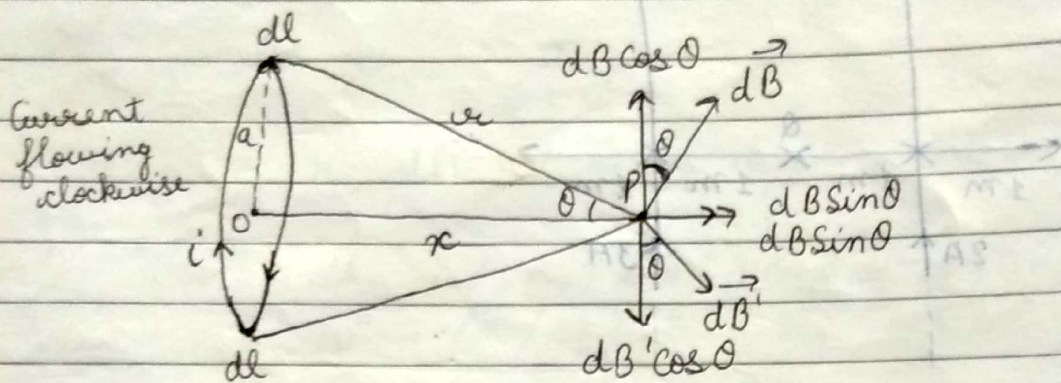 dl
dB Cos θ
dB→
Current
flowing
clockwise
a
r
θ
O
θ
P
dB Sin θ
dB Sin θ
i
x
θ
dB'→
dB' Cos θ
dl